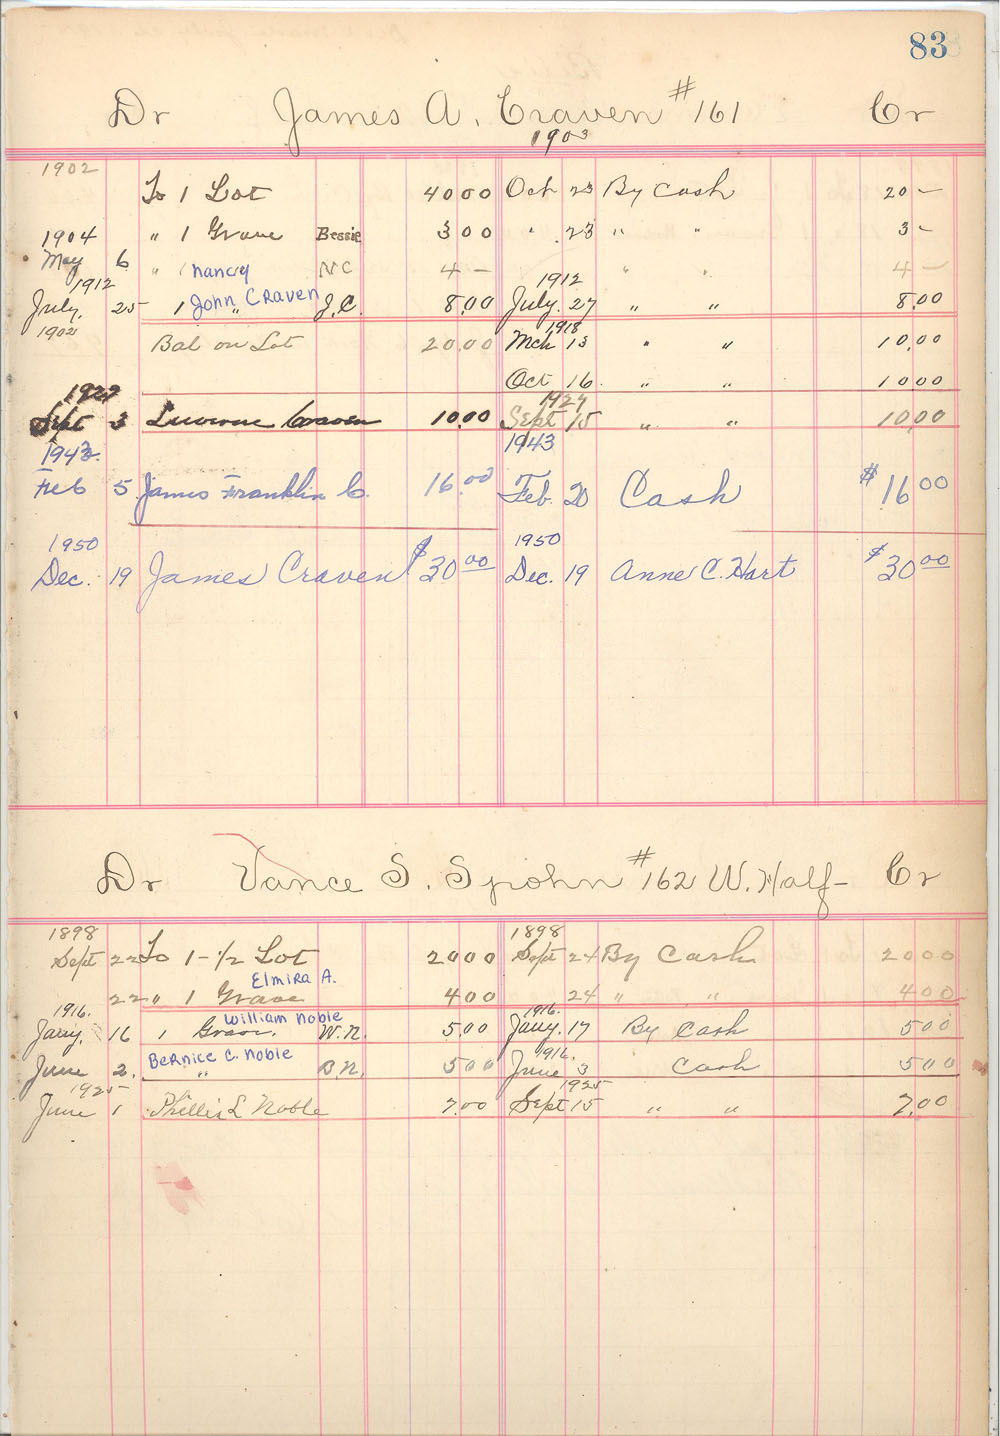 83
Dr James A. Craven #161 Cr
1903
1902
To 1 Lot 40 00 Oct 23 By Cash 20 –
1904 " 1 Grave Bessie 3 00 " 23 " " 3 –
May 6 " 1 Nancy NC 4 – " " 4 –
1912 1912
July. 25 1 John Craven " J.C. 8.00 July. 27 " " 8.00
1902 1918
Bal on Lot 20.00 Mch 13 " " 10.00
Oct 16. " " 10 00
1927 1927
Sept 3 Craven 10.00 Sept 15 " " 10.00
1943. 1943
Feb 5. James Franklin C. 16.00 Feb. 20 Cash $16 00
1950 1950
Dec. 19 James Craven $30 00 Dec. 19 Anne C. Hart $30 00
Dr Vance S. Spohn #162 W. Half – Cr
1898 1898
Sept 22 To 1 – 1/2 Lot 20 00 Sept 24 By Cash 20 00
Elmira A.
22 " 1 Grave 4 00 24 " " 4 00
1916. William Noble 1916.
Jany. 16 1 Grave. W.N. 5.00 Jany. 17 By Cash 5 00
Bernice C. Noble 1916.
June 2. " B.N. 5 00 June 3 Cash 5 00
1925 1925
June 1 Phillis L Noble 7.00 Sept 15 " " 7.00